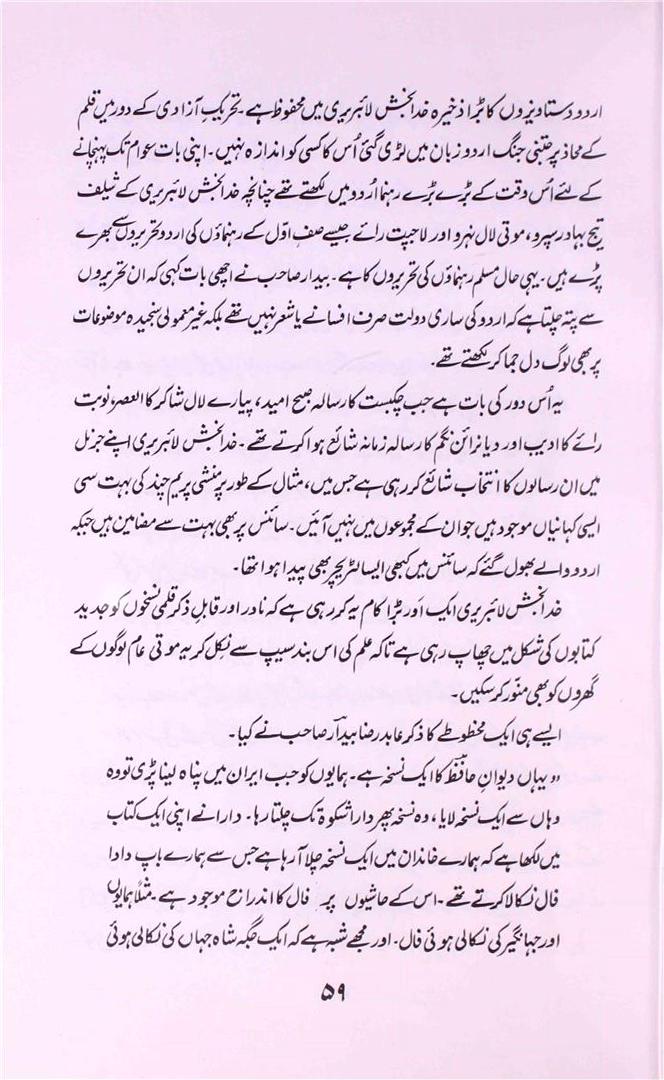 اردو دستاویزوں کا بڑا ذخیرہ خدا بخش لائبریری میں محفوظ ہے۔ تحریکِ آزادی کے دور میں قلم
کے محاذ پر جتنی جنگ اردو زبان میں لڑی گئی اُس کا کسی کو اندازہ نہیں۔ اپنی بات عوام تک پہنچانے
کے لئے اُس وقت کے بڑے بڑے رہنما اُردو میں لکھتے تھے چنانچہ خدا بخش لائبریری کے شیلف
تیج بہادر سپرو، موتی لال نہرو اور لاجپت رائے جیسے صفِ اوّل کے رہنماؤں کی اردو تحریروں سے بھرے
پڑے ہیں۔ یہی حال مسلم رہنماؤں کی تحریروں کا ہے۔ بیدار صاحب نے اچھی بات کہی کہ ان تحریروں
سے پتہ چلتا ہے کہ اردو کی ساری دولت صرف افسانے یا شعر نہیں تھے بلکہ غیر معمولی سنجیدہ موضوعات
پر بھی لوگ دل جما کر لکھتے تھے۔
یہ اُس دور کی بات ہے جب چکبست کا رسالہ صبح امید، پیارے لال شاکر کا العصر، نوبت
رائے کا ادیب اور دیا نرائن نگم کا رسالہ زمانہ شائع ہوا کرتے تھے۔ خدا بخش لائبریری اپنے جرنل
میں ان رسالوں کا انتخاب شائع کر رہی ہے جس میں، مثال کے طور پر منشی پریم چند کی بہت سی
ایسی کہانیاں موجود ہیں جو ان کے مجموعوں میں نہیں آئیں۔ سائنس پر بھی بہت سے مضامین ہیں جبکہ
اردو والے بھول گئے کہ سائنس میں کبھی ایسا لٹریچر بھی پیدا ہوا تھا۔
خدا بخش لائبریری ایک اَور بڑا کام یہ کر رہی ہے کہ نادر اور قابلِ ذکر قلمی نسخوں کو جدید
کتابوں کی شکل میں چھاپ رہی ہے تاکہ علم کی اس بند سیپ سے نکل کر یہ موتی عام لوگوں کے
گھروں کو بھی منوّر کر سکیں۔
ایسے ہی ایک مخطوطے کا ذکر عابد رضا بیدار صاحب نے کیا۔
"یہاں دیوانِ حافظ کا ایک نسخہ ہے۔ ہمایوں کو جب ایران میں پناہ لینا پڑی تو وہ
وہاں سے ایک نسخہ لایا، وہ نسخہ پھر دارا شکوۃ تک چلتا رہا۔ دارا نے اپنی ایک کتاب
میں لکھا ہے کہ ہمارے خاندان میں ایک نسخہ چلا آ رہا ہے جس سے ہمارے باپ دادا
فال نکالا کرتے تھے۔ اس کے حاشیوں پر فال کا اندراج موجود ہے۔ مثلاً ہمایوں
اور جہانگیر کی نکالی ہوئی فال۔ اور مجھے شبہ ہے کہ ایک جگہ شاہ جہاں کی نکالی ہوئی
۵۹